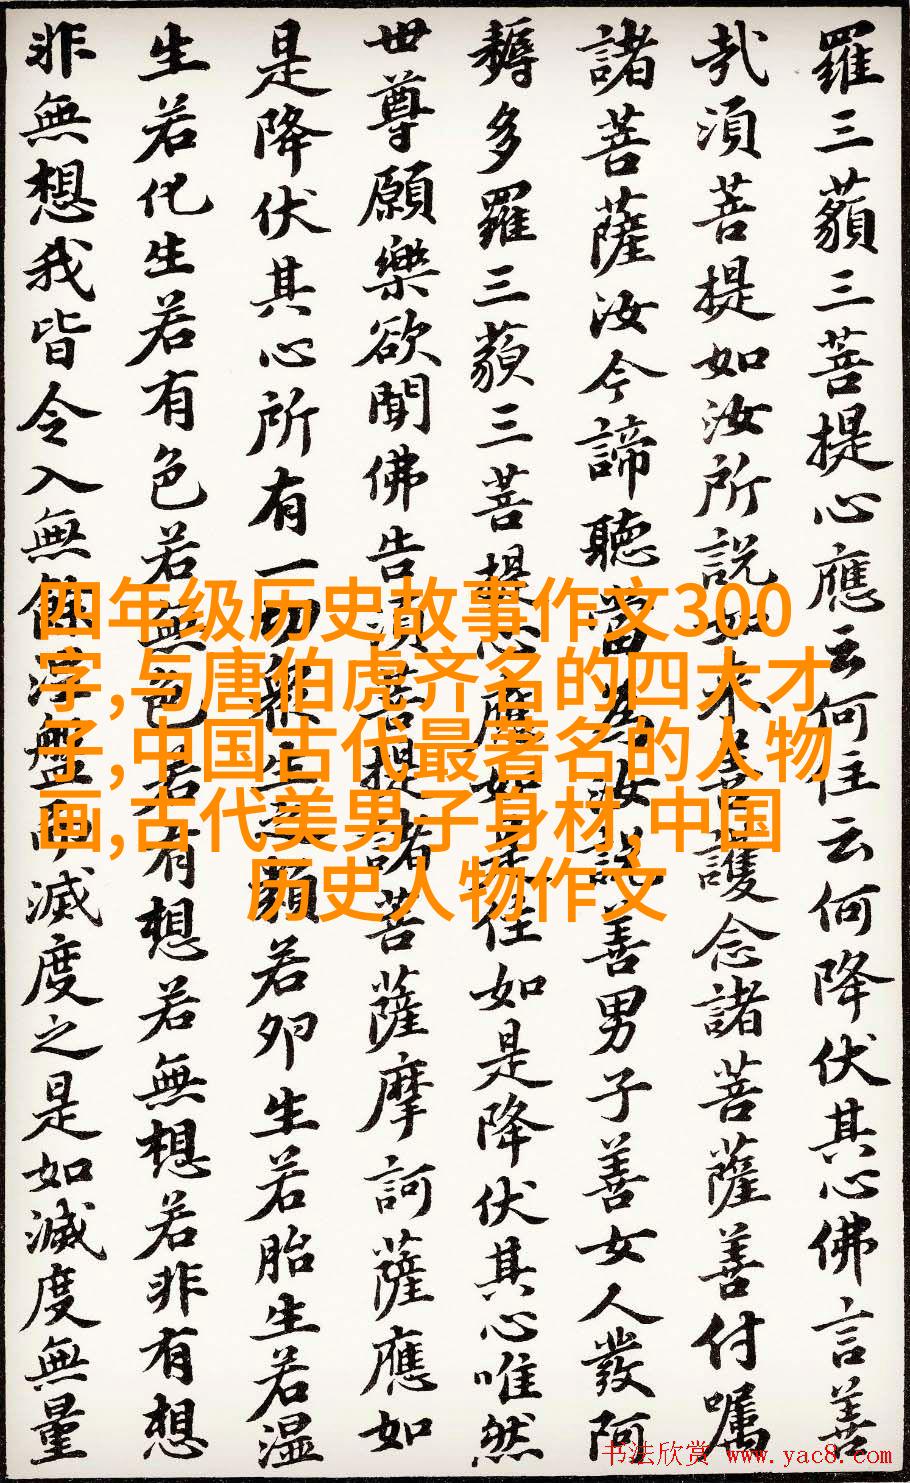 羅三藐三菩提心應云何住云何降伏其心佛言善
哉須菩提如汝所説如來善護念諸菩薩善付囑
諸菩薩汝今諦聽當為汝説善男子善女人發阿
耨多羅三藐三菩提心應如是住如是降伏其心唯然
世尊願樂欲聞佛告須菩提諸菩薩摩訶薩應如
是降伏其心所有一切眾生之類若卵生若胎生若湿
生若化生若有色若無色若有想若無想若非有想
非無想我皆令入無餘涅盤而滅度之是如滅度無量
四年级历史故事作文300
字,与唐伯虎齐名的四大才
子,中国古代最著名的人物
画,古代美男子身材,中国
历史人物作文
书法欣赏 www.yac8.com